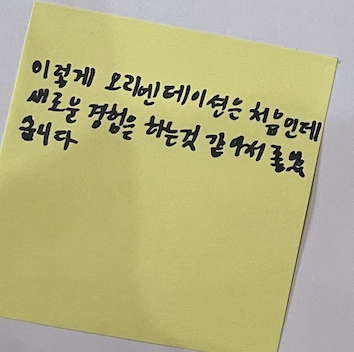 이렇게 오리벤테이션은 처음인데
새로운 경험을 하는것 같아서 좋았
습니다